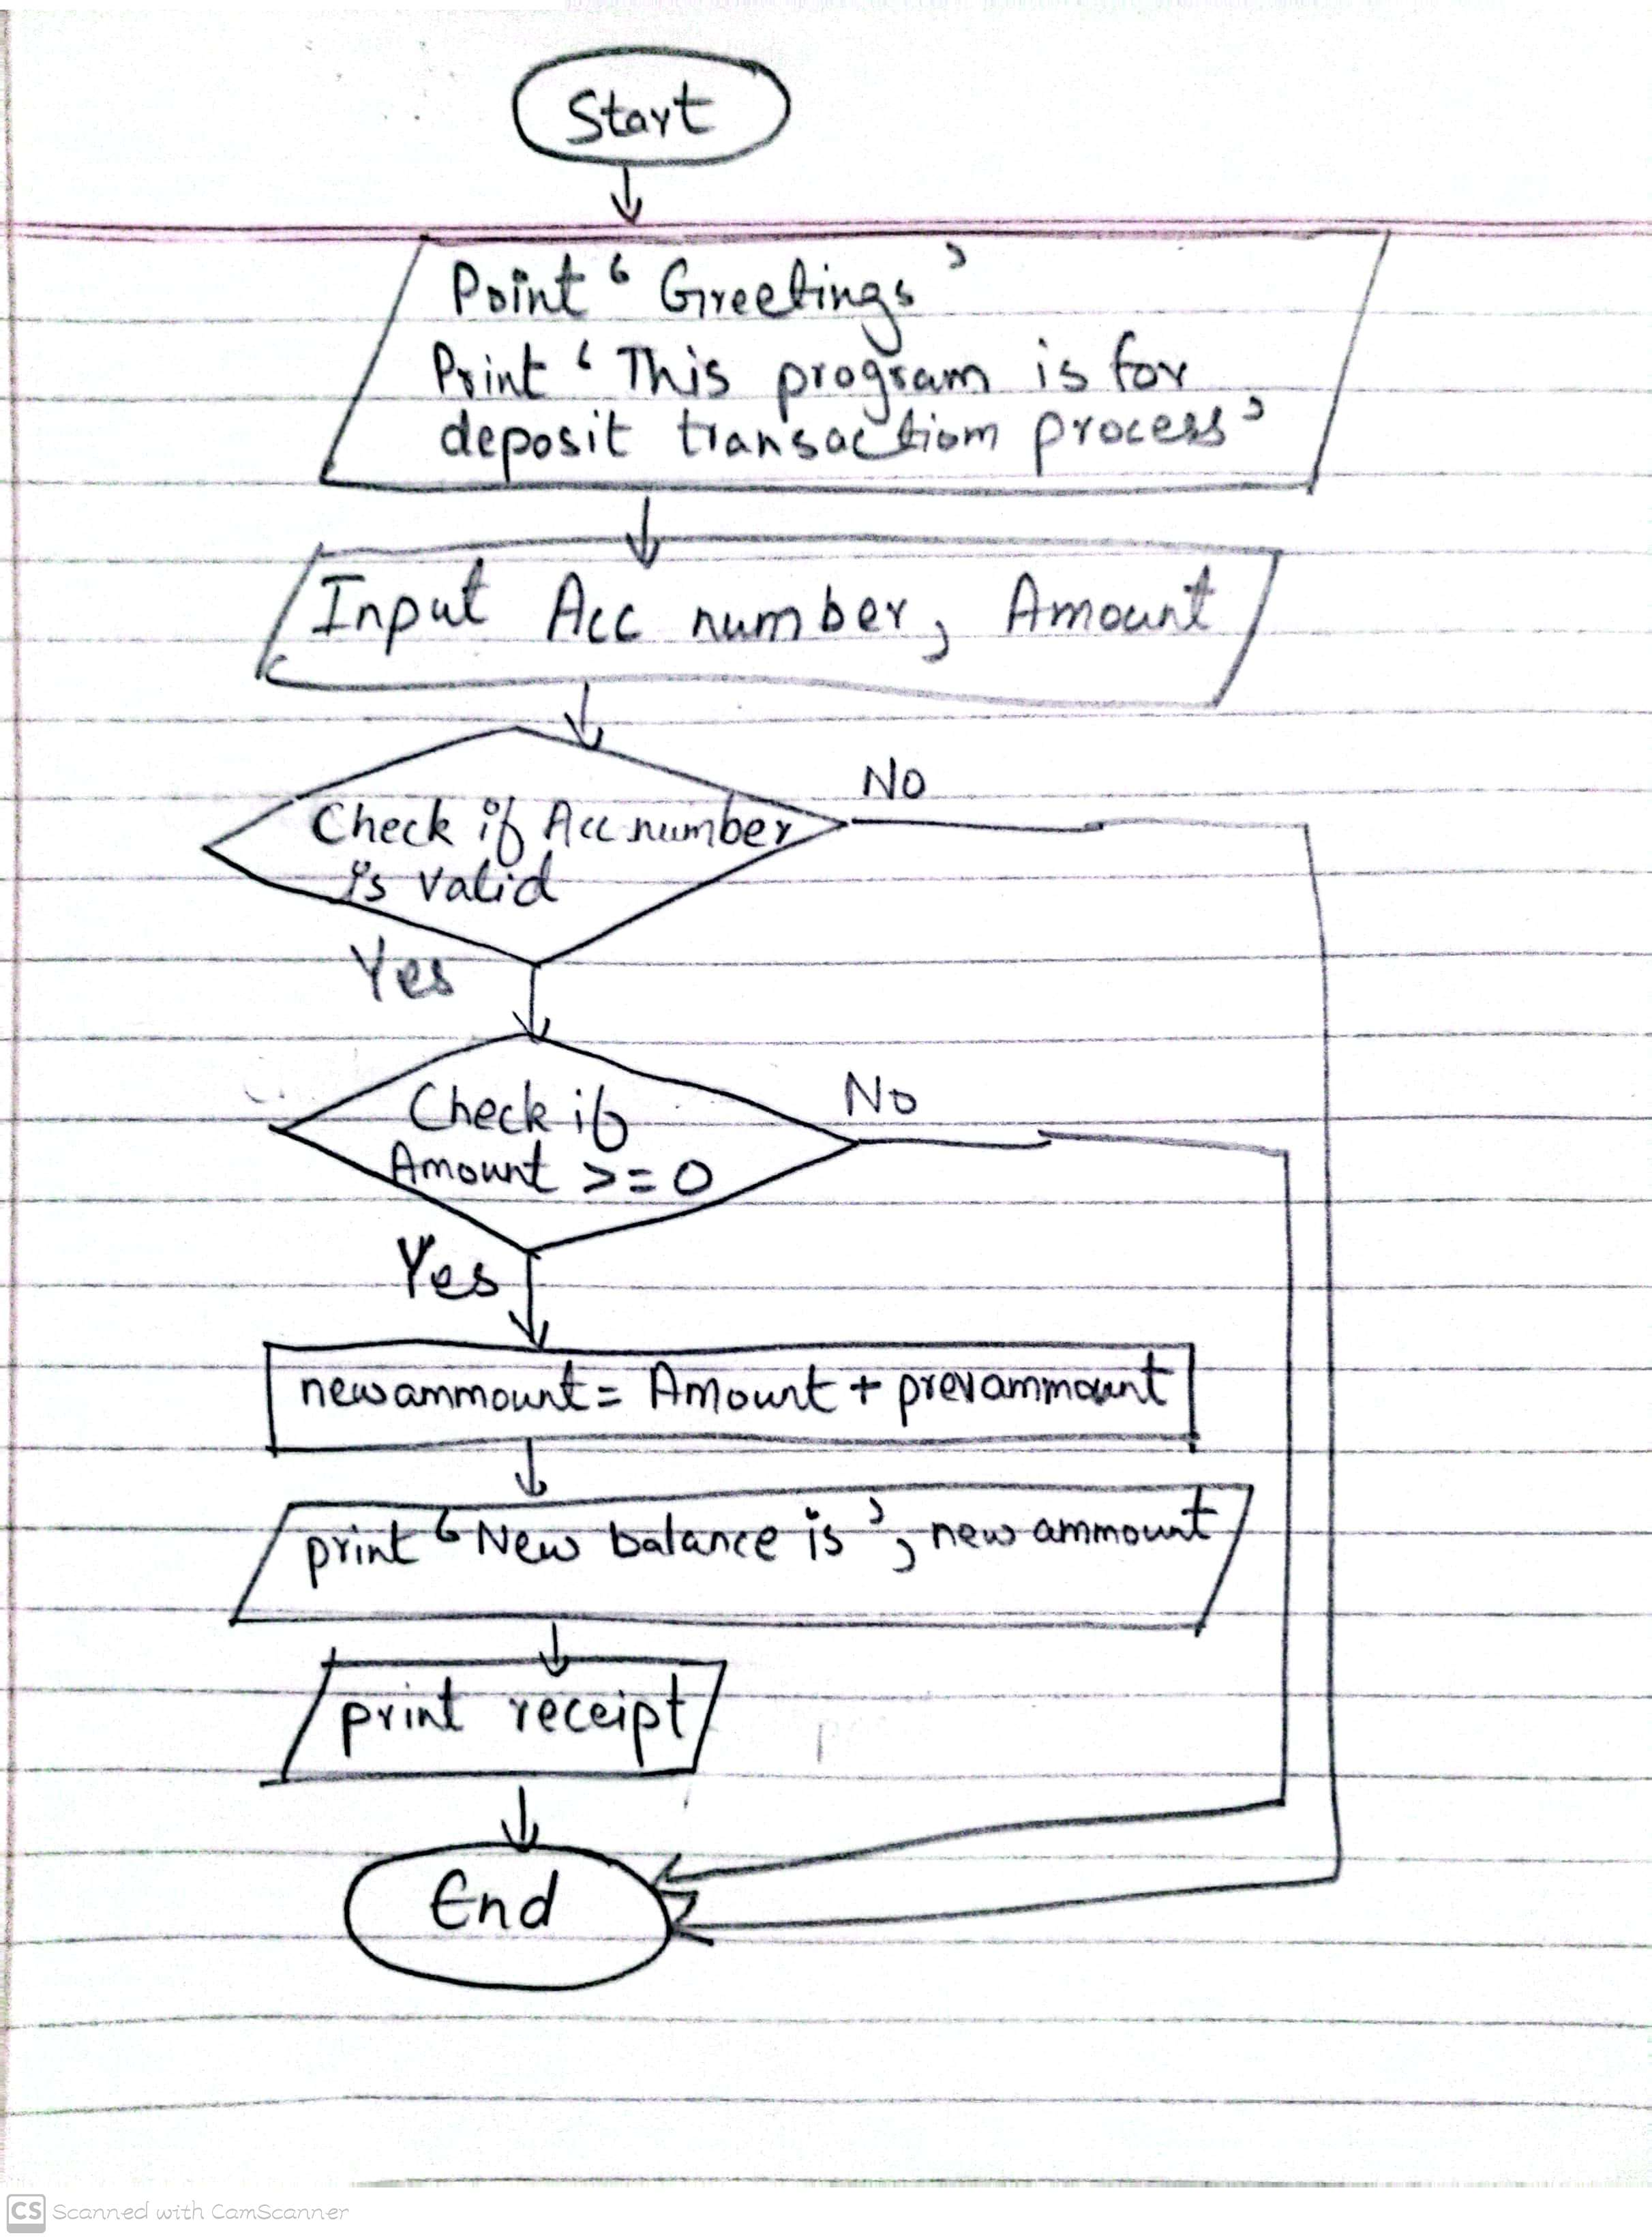 Start
Print ‘ Greetings ’
Print ‘ This program is for
deposit transaction process ’
Input Acc number, Amount
Check if Acc number
is valid
No
Yes
Check if
Amount >= 0
No
Yes
newammount = Amount + prevammount
print ‘ New balance is ’, new ammount
print receipt
End
CS Scanned with CamScanner